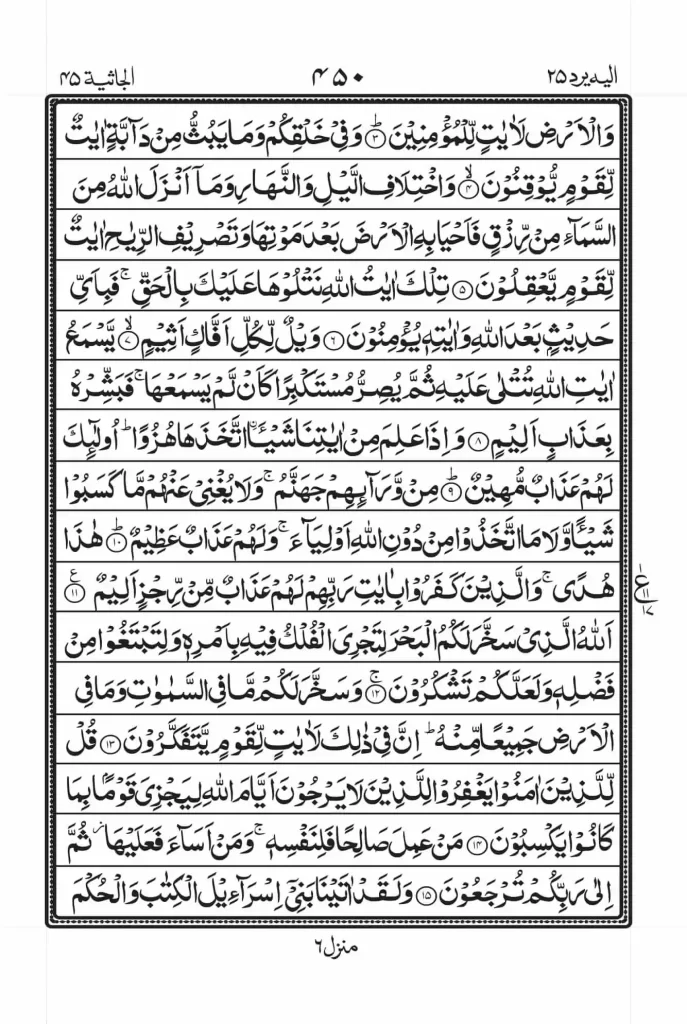 الیہ یرد ۲۵
۴۵۰
الجاثیة ۴۵
وَالۡاَرۡضِ لَاٰیٰتٍ لِّلۡمُؤۡمِنِیۡنَ ﴿ؕ۳﴾ وَفِیۡ خَلۡقِکُمۡ وَمَا یَبُثُّ مِنۡ دَآبَّۃٍ اٰیٰتٌ
لِّقَوۡمٍ یُّوۡقِنُوۡنَ ﴿ۙ۴﴾ وَاخۡتِلَافِ الَّیۡلِ وَالنَّهَارِ وَمَاۤ اَنۡزَلَ اللّٰهُ مِنَ
السَّمَآءِ مِنۡ رِّزۡقٍ فَاَحۡیَا بِهِ الۡاَرۡضَ بَعۡدَ مَوۡتِهَا وَتَصۡرِیۡفِ الرِّیٰحِ اٰیٰتٌ
لِّقَوۡمٍ یَّعۡقِلُوۡنَ ﴿۵﴾ تِلۡكَ اٰیٰتُ اللّٰهِ نَتۡلُوۡهَا عَلَیۡكَ بِالۡحَقِّ ۚ فَبِاَیِّ
حَدِیۡثٍۭ بَعۡدَ اللّٰهِ وَاٰیٰتِهٖ یُؤۡمِنُوۡنَ ﴿۶﴾ وَیۡلٌ لِّکُلِّ اَفَّاكٍ اَثِیۡمٍ ﴿ۙ۷﴾ یَّسۡمَعُ
اٰیٰتِ اللّٰهِ تُتۡلٰی عَلَیۡهِ ثُمَّ یُصِرُّ مُسۡتَکۡبِرًا کَاَنۡ لَّمۡ یَسۡمَعۡهَا ۚ فَبَشِّرۡهُ
بِعَذَابٍ اَلِیۡمٍ ﴿۸﴾ وَاِذَا عَلِمَ مِنۡ اٰیٰتِنَا شَیۡـًٔۨا اتَّخَذَهَا هُزُوًا ؕ اُولٰٓئِكَ
لَهُمۡ عَذَابٌ مُّهِیۡنٌ ﴿ؕ۹﴾ مِنۡ وَّرَآئِهِمۡ جَهَنَّمُ ۚ وَلَا یُغۡنِیۡ عَنۡهُمۡ مَّا کَسَبُوۡا
شَیۡـًٔا وَّلَا مَا اتَّخَذُوۡا مِنۡ دُوۡنِ اللّٰهِ اَوۡلِیَآءَ ۚ وَلَهُمۡ عَذَابٌ عَظِیۡمٌ ﴿ؕ۱۰﴾ هٰذَا
هُدًی ۚ وَالَّذِیۡنَ کَفَرُوۡا بِاٰیٰتِ رَبِّهِمۡ لَهُمۡ عَذَابٌ مِّنۡ رِّجۡزٍ اَلِیۡمٌ ﴿۱۱﴾ ع
ع ۱۱ ۱۷
اَللّٰهُ الَّذِیۡ سَخَّرَ لَکُمُ الۡبَحۡرَ لِتَجۡرِیَ الۡفُلۡكُ فِیۡهِ بِاَمۡرِهٖ وَلِتَبۡتَغُوۡا مِنۡ
فَضۡلِهٖ وَلَعَلَّکُمۡ تَشۡکُرُوۡنَ ﴿ۚ۱۲﴾ وَسَخَّرَ لَکُمۡ مَّا فِی السَّمٰوٰتِ وَمَا فِی
الۡاَرۡضِ جَمِیۡعًا مِّنۡهُ ؕ اِنَّ فِیۡ ذٰلِكَ لَاٰیٰتٍ لِّقَوۡمٍ یَّتَفَکَّرُوۡنَ ﴿۱۳﴾ قُلۡ
لِّلَّذِیۡنَ اٰمَنُوۡا یَغۡفِرُوۡا لِلَّذِیۡنَ لَا یَرۡجُوۡنَ اَیَّامَ اللّٰهِ لِیَجۡزِیَ قَوۡمًۢا بِمَا
کَانُوۡا یَکۡسِبُوۡنَ ﴿۱۴﴾ مَنۡ عَمِلَ صَالِحًا فَلِنَفۡسِهٖ ۚ وَمَنۡ اَسَآءَ فَعَلَیۡهَا ۫ ثُمَّ
اِلٰی رَبِّکُمۡ تُرۡجَعُوۡنَ ﴿۱۵﴾ وَلَقَدۡ اٰتَیۡنَا بَنِیۡۤ اِسۡرَآءِیۡلَ الۡکِتٰبَ وَالۡحُکۡمَ
منزل ۶